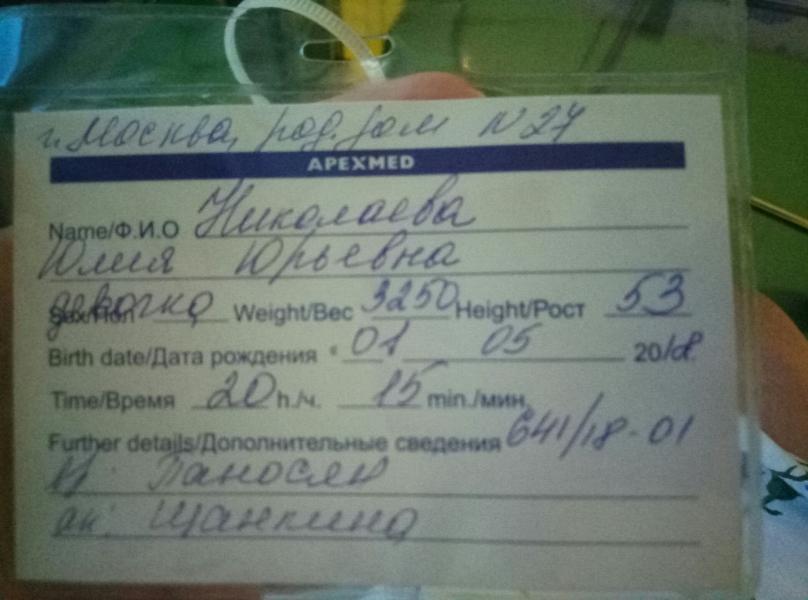 г. Москва, род. дом N 27
APEXMED
Name/Ф.И.О Николаева
Юлия Юрьевна
Sex/Пол девочка Weight/Вес 3250 Height/Рост 53
Birth date/Дата рождения "01 05 2018
Time/Время 20 h./ч. 15 min./мин.
Further details/Дополнительные сведения 641/18-01
Паносян
ак: Щанкина